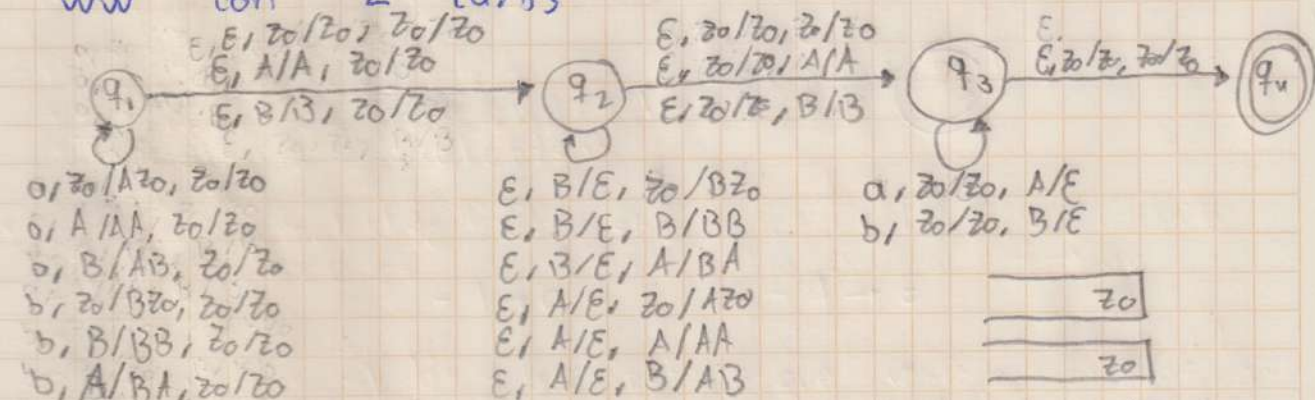 ww con Σ {a,b}
ε, z0/z0, z0/z0
ε, A/A, z0/z0
ε, B/B, z0/z0
ε, z0/z0, z0/z0
ε, z0/z0, A/A
ε, z0/z0, B/B
ε, z0/z0, z0/z0
q1
q2
q3
q4
a, z0/Az0, z0/z0
a, A/AA, z0/z0
a, B/AB, z0/z0
b, z0/Bz0, z0/z0
b, B/BB, z0/z0
b, A/BA, z0/z0
ε, B/ε, z0/Bz0
ε, B/ε, B/BB
ε, B/ε, A/BA
ε, A/ε, z0/Az0
ε, A/ε, A/AA
ε, A/ε, B/AB
a, z0/z0, A/ε
b, z0/z0, B/ε
z0
z0